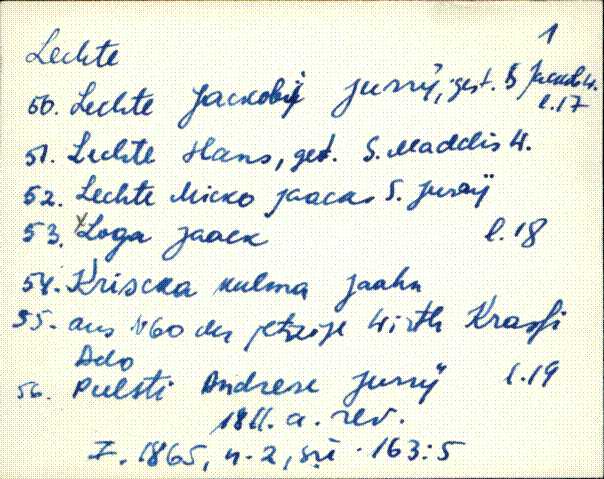 1
Lechte
50. Lechte Jackobi Jurrÿ, gest. S. Jackob W.
l.17
51. Lechte Hans, gest. S. Maddis W.
52. Lechte Micko Jaacks S. Jurrÿ
53. Loga Jaack l.18
54. Kriscka kulma Jaahn
55. aus N60 der jetzige Wirth Krassi
Ado
56. Pulsti Andrese Jurrÿ l.19
1811. a. rev.
F. 1865, n. 2, sü. 163:5